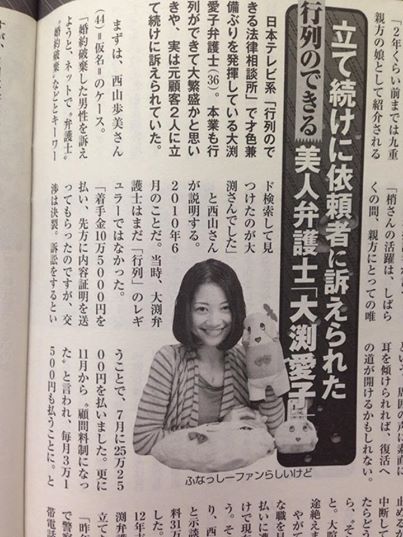 「2年くらい前までは九重
親方の娘として紹介される
「梢さんの活躍は、しばら
くの間、親方にとっての唯
という。周囲の声に素直に
耳を傾けられれば、復活へ
の道が開けるかもしれない。
立て続けに依頼者に訴えられた
行列のできる美人弁護士「大渕愛子」
日本テレビ系「行列ので
きる法律相談所」で才色兼
備ぶりを発揮している大渕
愛子弁護士(36)。本業も行
列ができて大繁盛かと思い
きや、実は元顧客2人に立
て続けに訴えられていた。
まずは、西山歩美さん
(44)=仮名=のケース。
「婚約破棄した男性を訴え
ようと、ネットで〝弁護士〟
〝婚約破棄〟などとキーワー
ド検索して見
つけたのが大
渕さんでした」
と西山さん
が説明する。
2010年6
月のことだ。当時、大渕弁
護士はまだ「行列」のレギ
ュラーではなかった。
「着手金10万5000円を
払い、先方に内容証明を送
ってもらったのですが、交
渉は決裂。訴訟をするとい
ふなっしーファンらしいけど
うことで、7月に25万25
00円を払いました。更に
11月から〝顧問料制になっ
た〟と言われ、毎月3万1
500円も払うことに。と
中断して
たらどう
途絶えま
やがて
な職を見
払いに遭
けで現
う。そ
り、西
と示談
料31万
12年
渕弁
立て
「昨年
で警察
帯電話
すが、